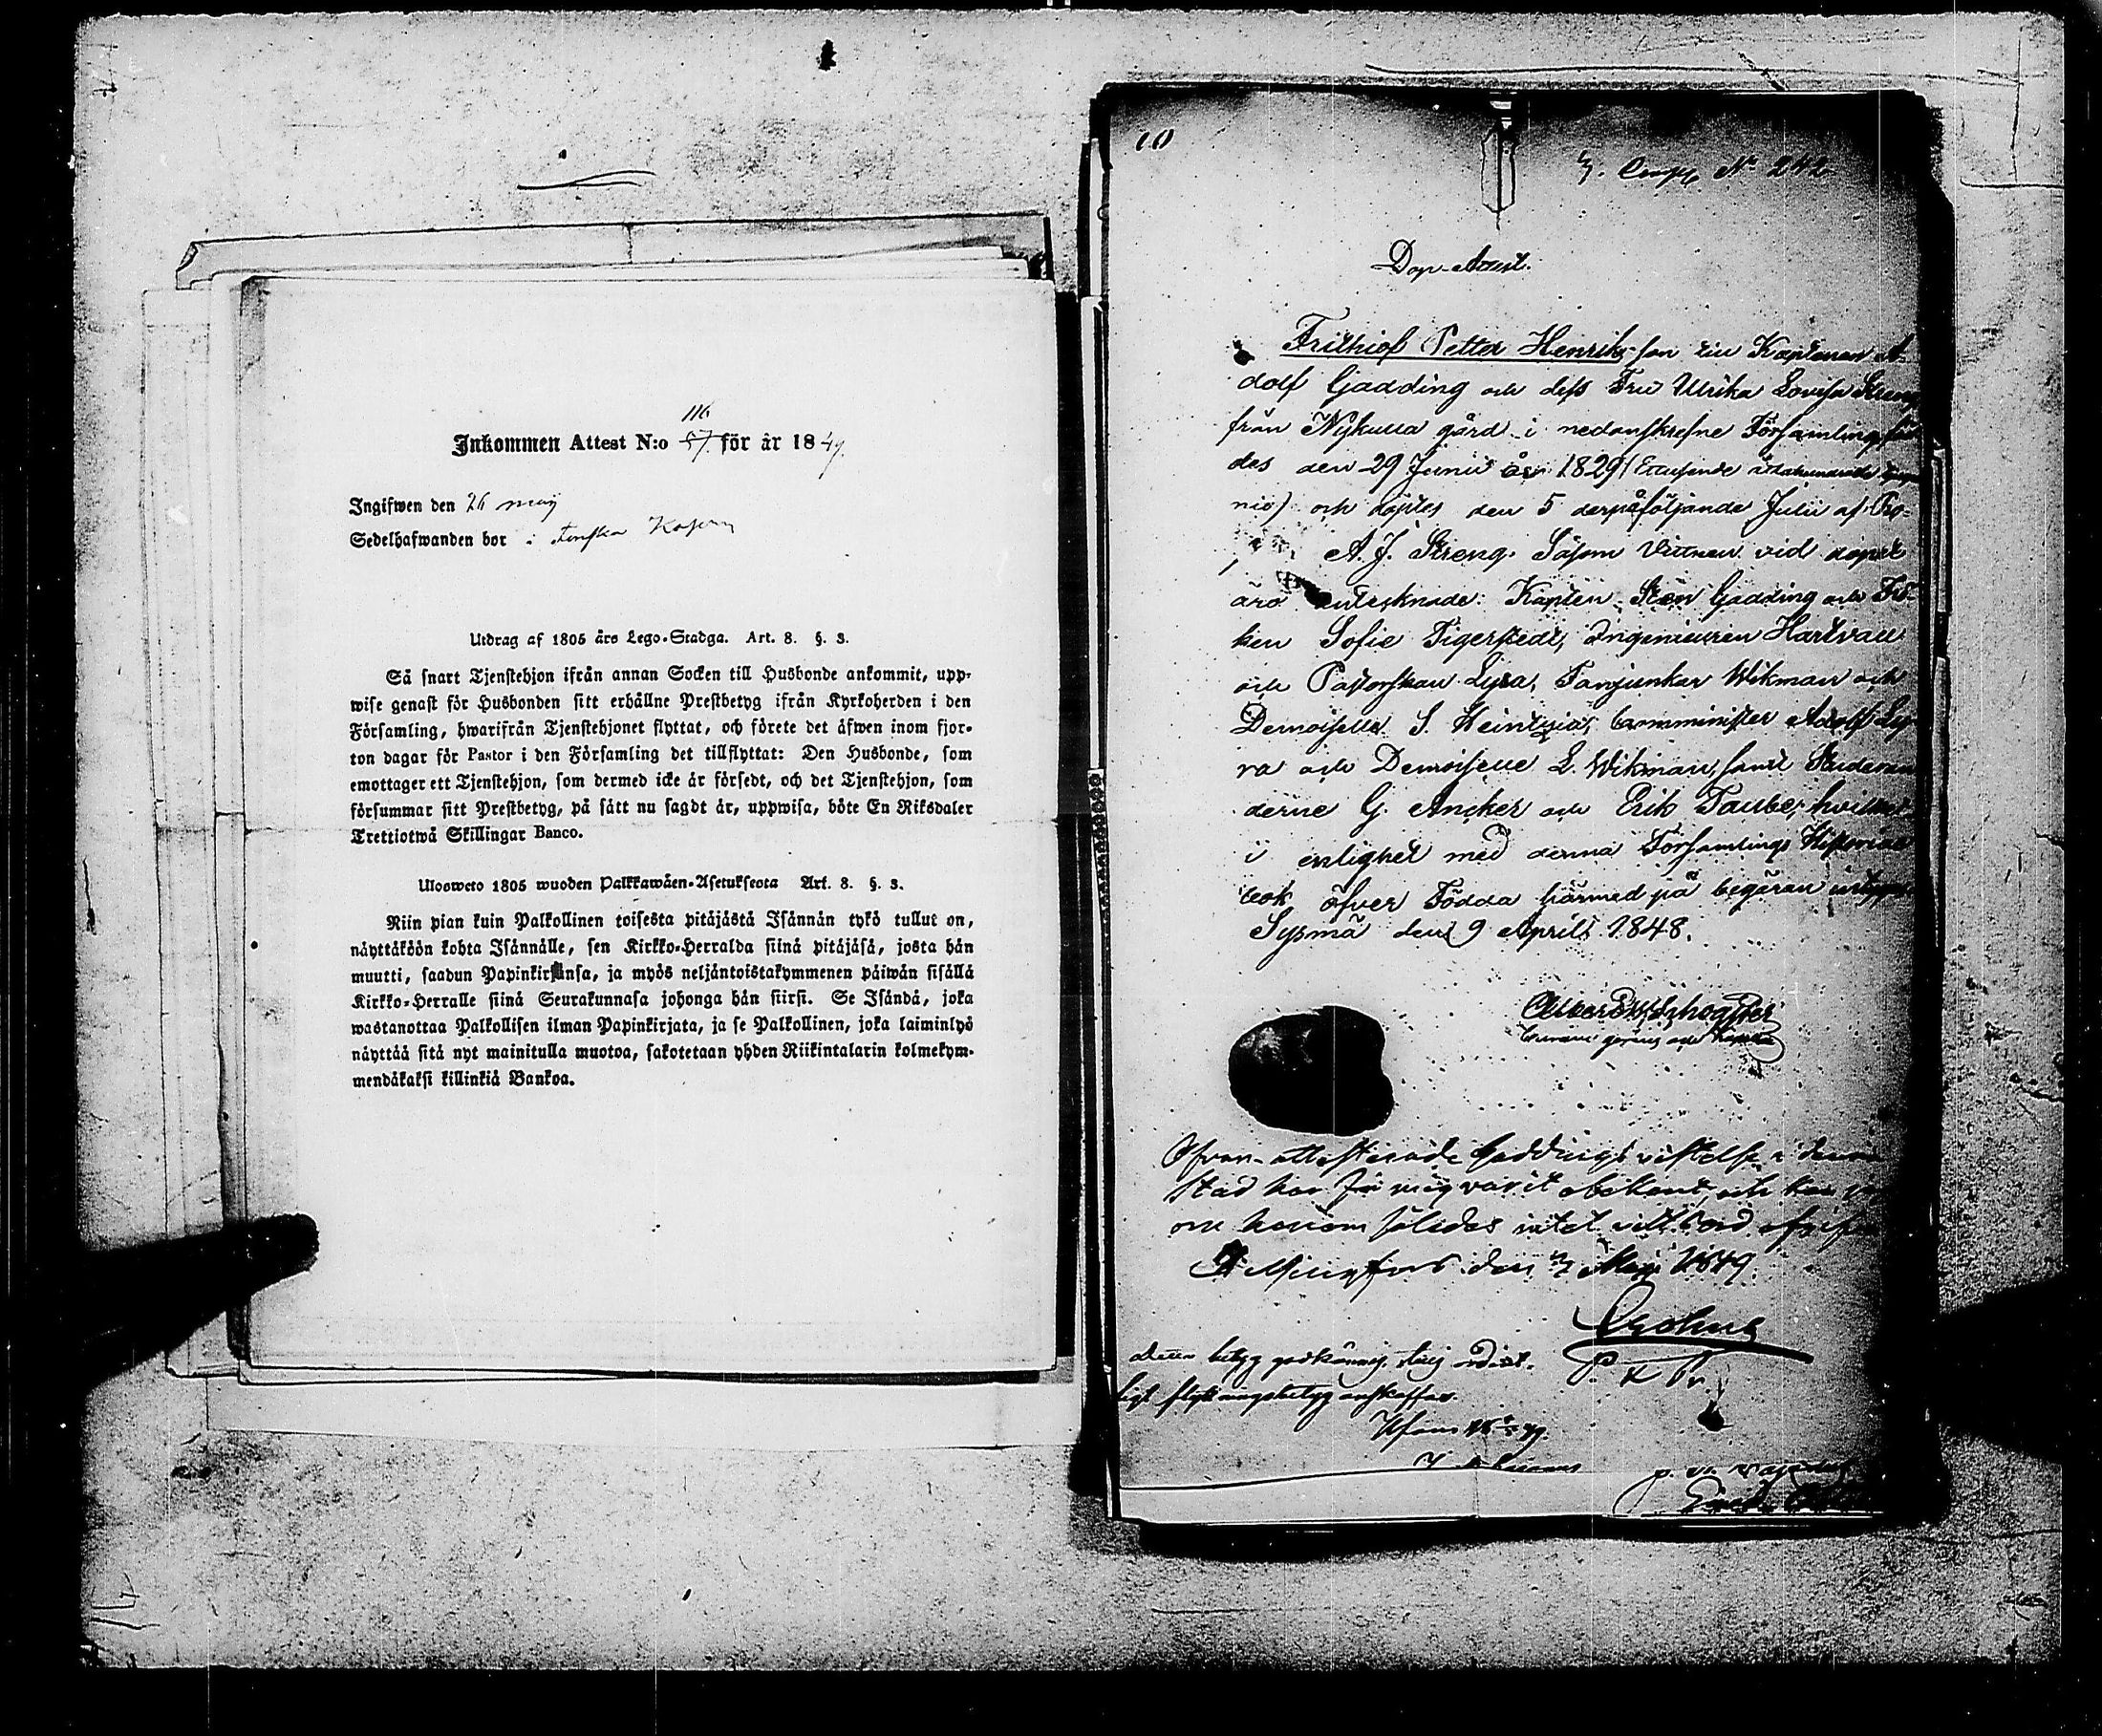 116
Inkommen Attest N:o 57. för år 1849.
Ingifwen den 26 maij
Sedelhafwanden bor i Finska
Utdrag af 1805 års Lego-Stadga. Art. 8. §. 3.
Så snart Tjenstehjon ifrån annan Socken till Husbonde ankommit, upp-
wise genast för Husbonden sitt erhållne Prestbetyg ifrån Kyrkoherden i den
Församling, hwarifrån Tjenstehjonet flyttat, och förete det äfwen inom fjor-
ton dagar för Pastor i den Församling det tillflyttat: Den Husbonde, som
emottager ett Tjenstehjon, som dermed icke är försedt, och det Tjenstehjon, som
försummar sitt Prestbetyg, på sätt nu sagdt är, uppwisa, böte En Riksdaler
Trettiotwå Skillingar Banco.
Ulosweto 1805 wuoden Palkkawäen-Asetuksesta Art. 8. §. 3.
Niin pian kuin Palkollinen toisesta pitäjästä Isännän tykö tullut on,
näyttäköön kohta Isännälle, sen Kirkko-Herralda siinä pitäjäsä, josta hän
muutti, saadun Papinkirjansa, ja myös neljäntoistakymmenen päiwän sisällä
Kirkko-Herralle siinä Seurakunnasa johonga hän siirsi. Se Isändä, joka
wastanottaa Palkollisen ilman Papinkirjata, ja se Palkollinen, joka laiminlyö
näyttää sitä nyt mainitulla muotoa, sakotetaan yhden Riikintalarin kolmekym-
mendäkaksi killinkiä Bankoa.
10
No 242
Dop-Attest.
Frithiof Petter Henrik, son till Kaptenen A-
dolf Gadding och dess Fru Ulrika Lovisa Streng
från Nykulla gård i nedanskrefne Församling föd-
des den 29 Junii år 1829 (Ettusende åttahundrade tjugu
nio) och döptes den 5 derpåföljande Julii af Pro-
A. J. Streng. Såsom Vittnen vid dopet
äro antecknade: Kapten Sten Gadding och Frö-
ken Sofie Tigerstedt, Ingenieuren Hartvall
och Pastorskan Lyra, Fanjunkar Wikman och
Demoiselle S. Heintzius, Comminister Adolf Ly-
ra och Demoiselle L. Wikman, samt Studeran-
derne G. Ancker och Erik Taube, hvilket
i enlighet med denna Församlings Historiae
bok öfver Födda härmed på begäran
Sysmä den 9 Aprils 1848.
Ofvan-attesterade Gaddings vistelse i denna
Stad har för mig varit obekant, och kan
om honom således intet vittsord afgifvas
Helsingfors den 7 Maji 1849.
Crohns
detta betyg godkännes
flyttningsbetyg anskaffas.